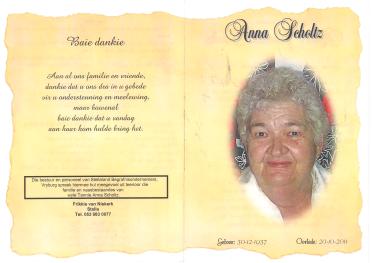 Baie dankie
Aan al ons familie en vriende,
dankie dat u ons dra in u gebede
vir u ondersteuning en meelewing,
maar bowenal
baie dankie dat u vandag
aan haar kom hulde bring het.
Die bestuur en personeel van Stellaland Begrafnisondernemers,
Vryburg spreek hiermee hul meegevoel uit teenoor die
familie en naasbestaandes van
wyle Tannie Anna Scholtz
Frikkie van Niekerk
Stella
Tel. 083 693 0077
Anna Scholtz
Gebore: 30-12-1937
Oorlede: 20-10-2011